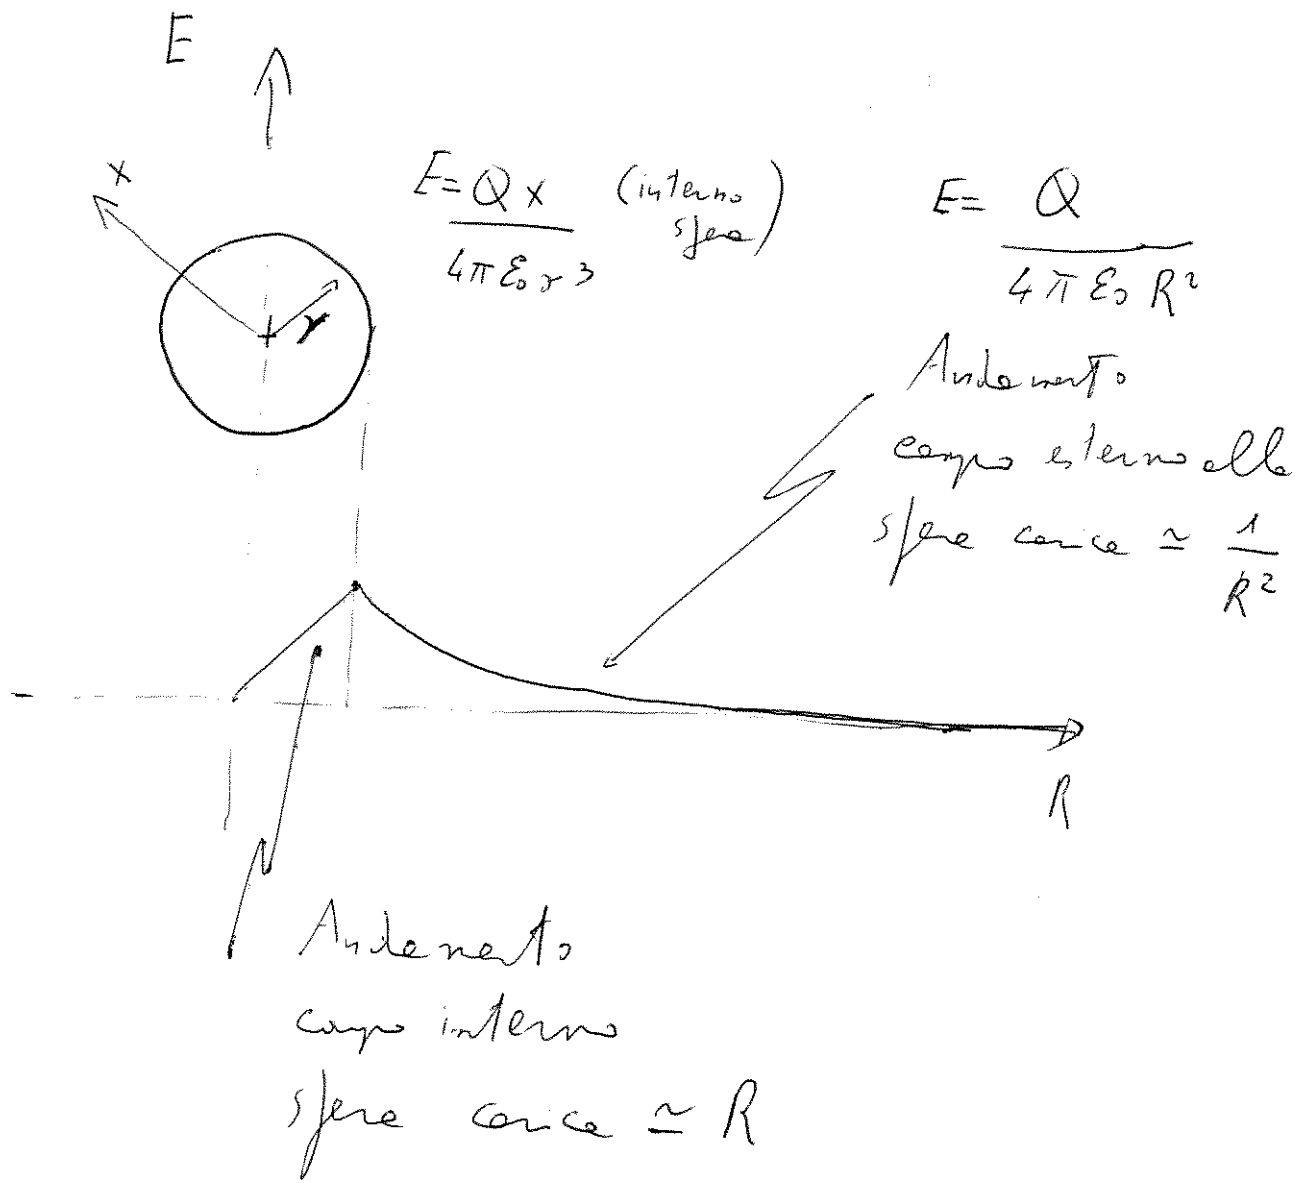 E
x
E= Qx (interno sfera)
4πε₀r³
r
E= Q
4πε₀R²
Andamento
campo esterno alla
sfera carica ≃ 1/R²
R
Andamento
campo interno
sfera carica ≃ R